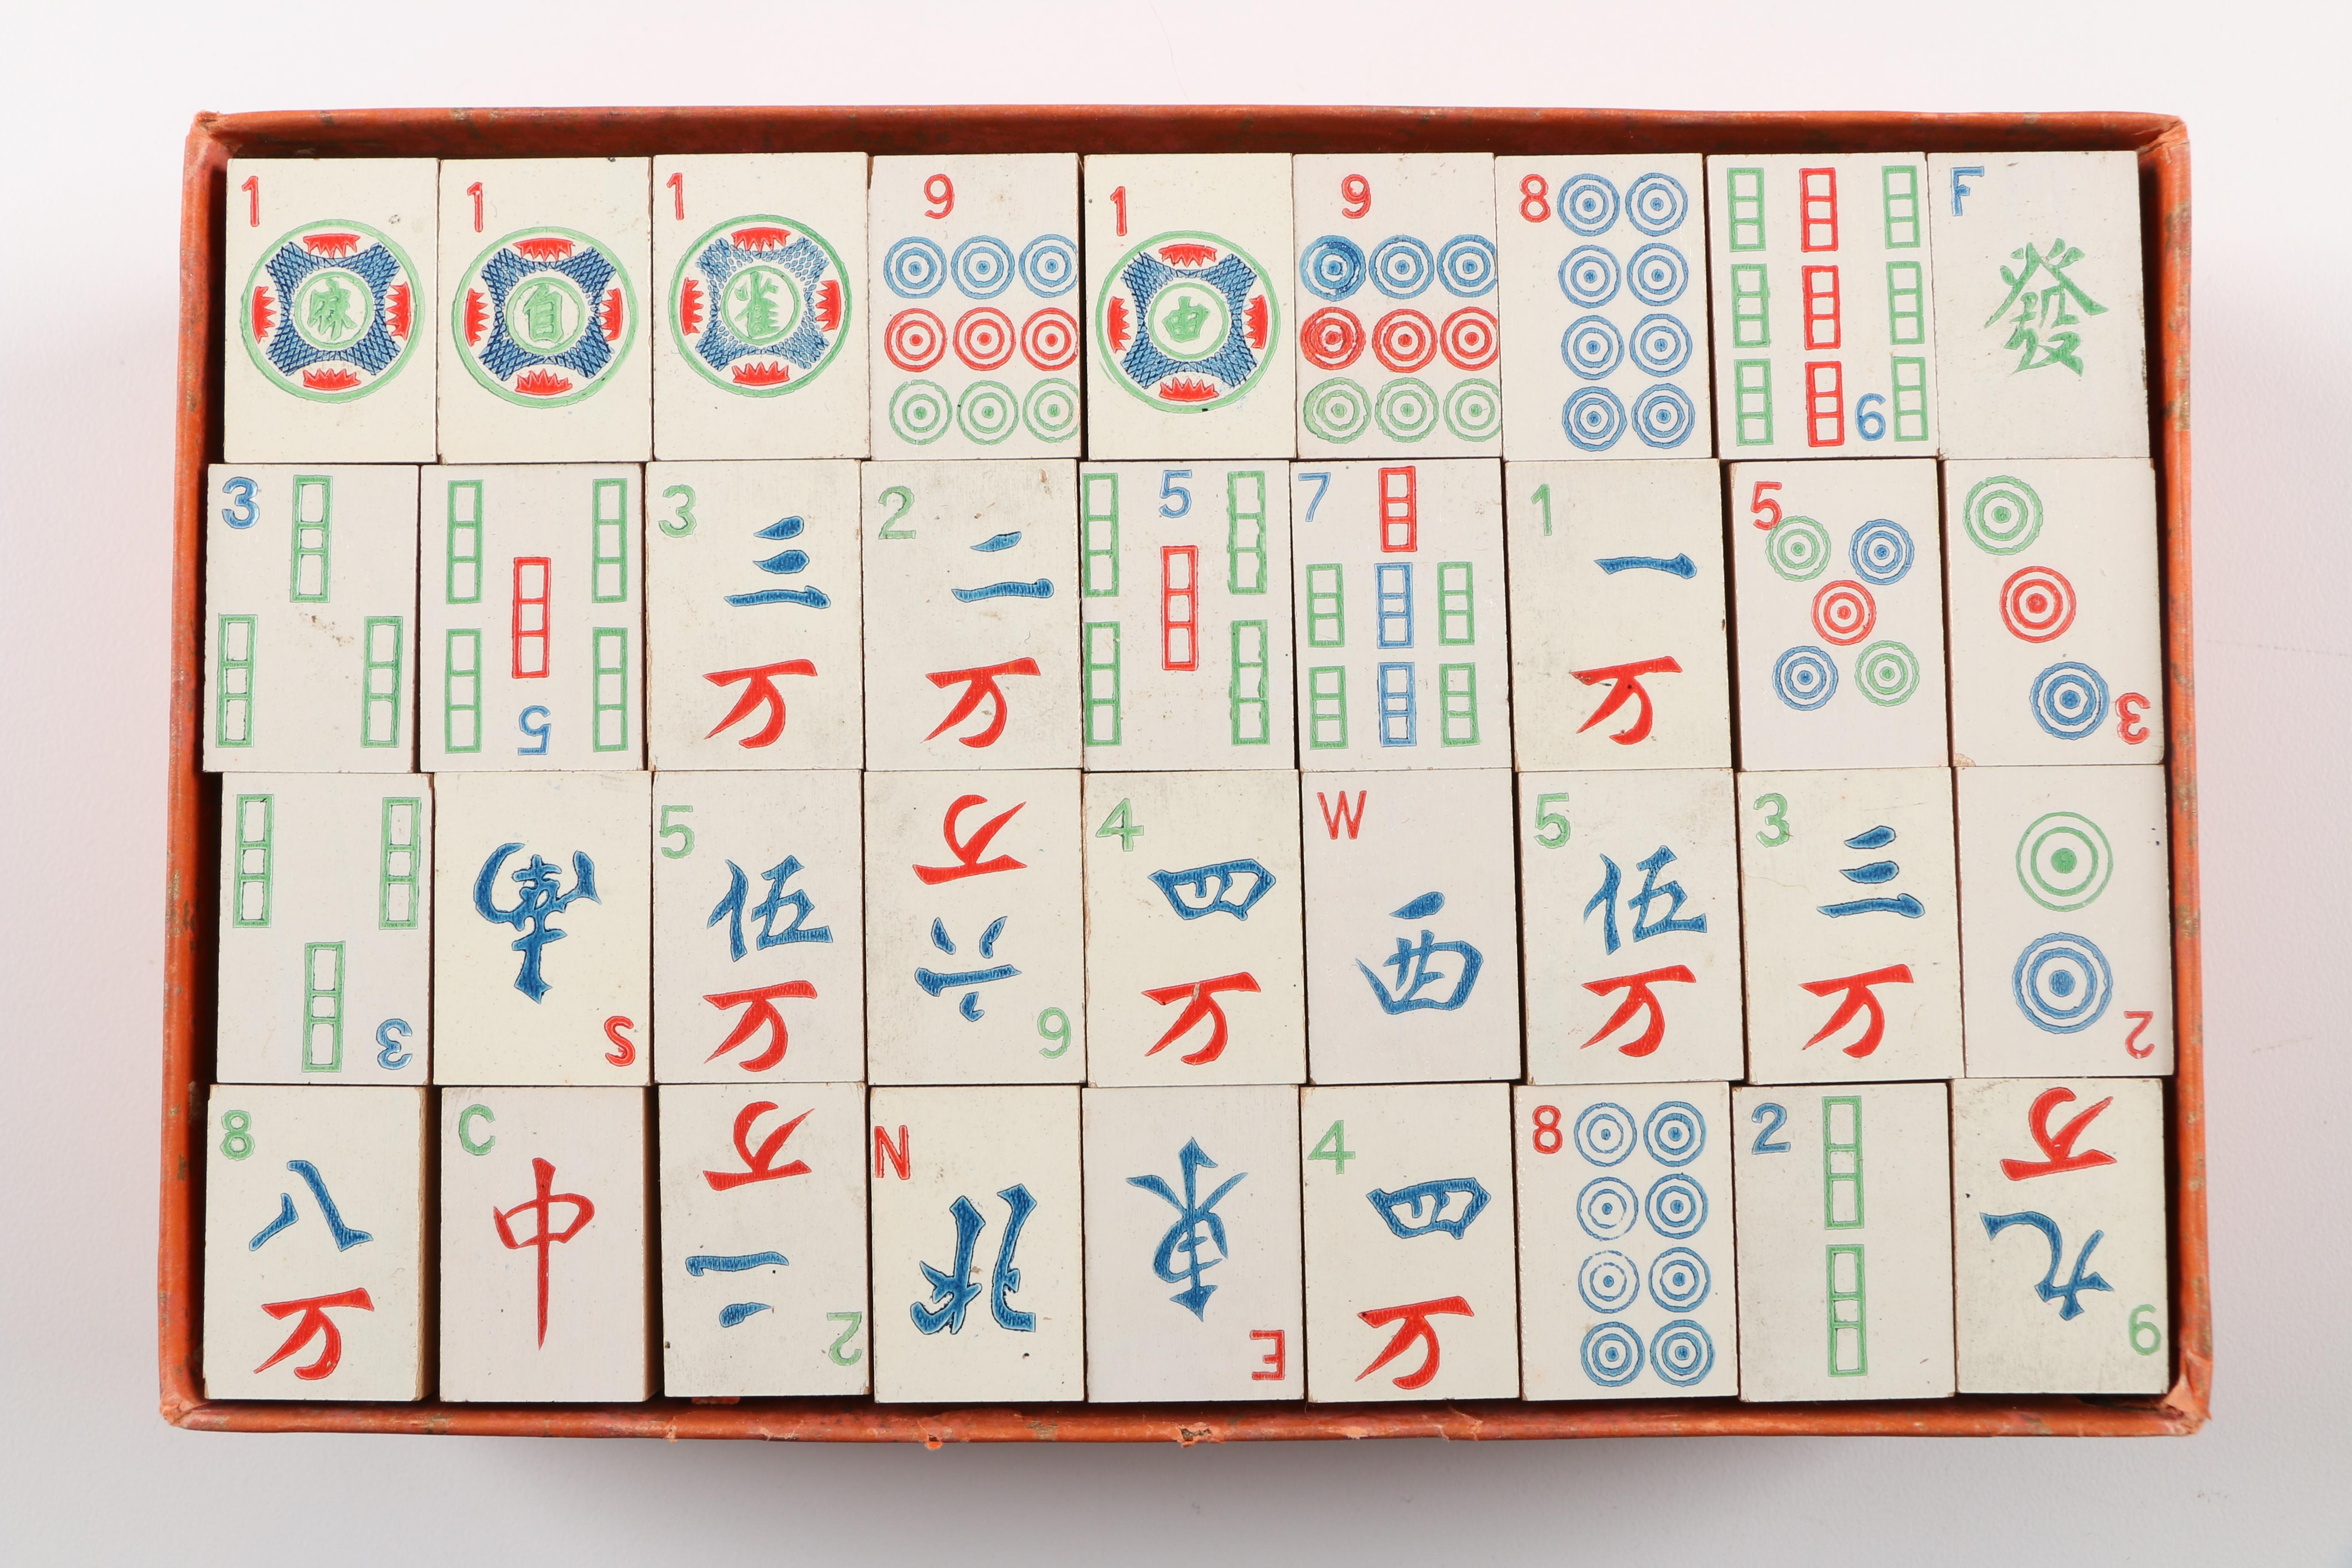 1 麻
1 自
1 雀
9
1 由
9
8
9
F 發
3
5
3 三 万
2 二 万
5
7
1 一 万
5
3
3
S 南
5 伍 万
6 六 万
4 四 万
W 西
5 伍 万
3 三 万
2
8 八 万
C 中
2 二 万
N 北
E 東
4 四 万
8
2
9 九 万